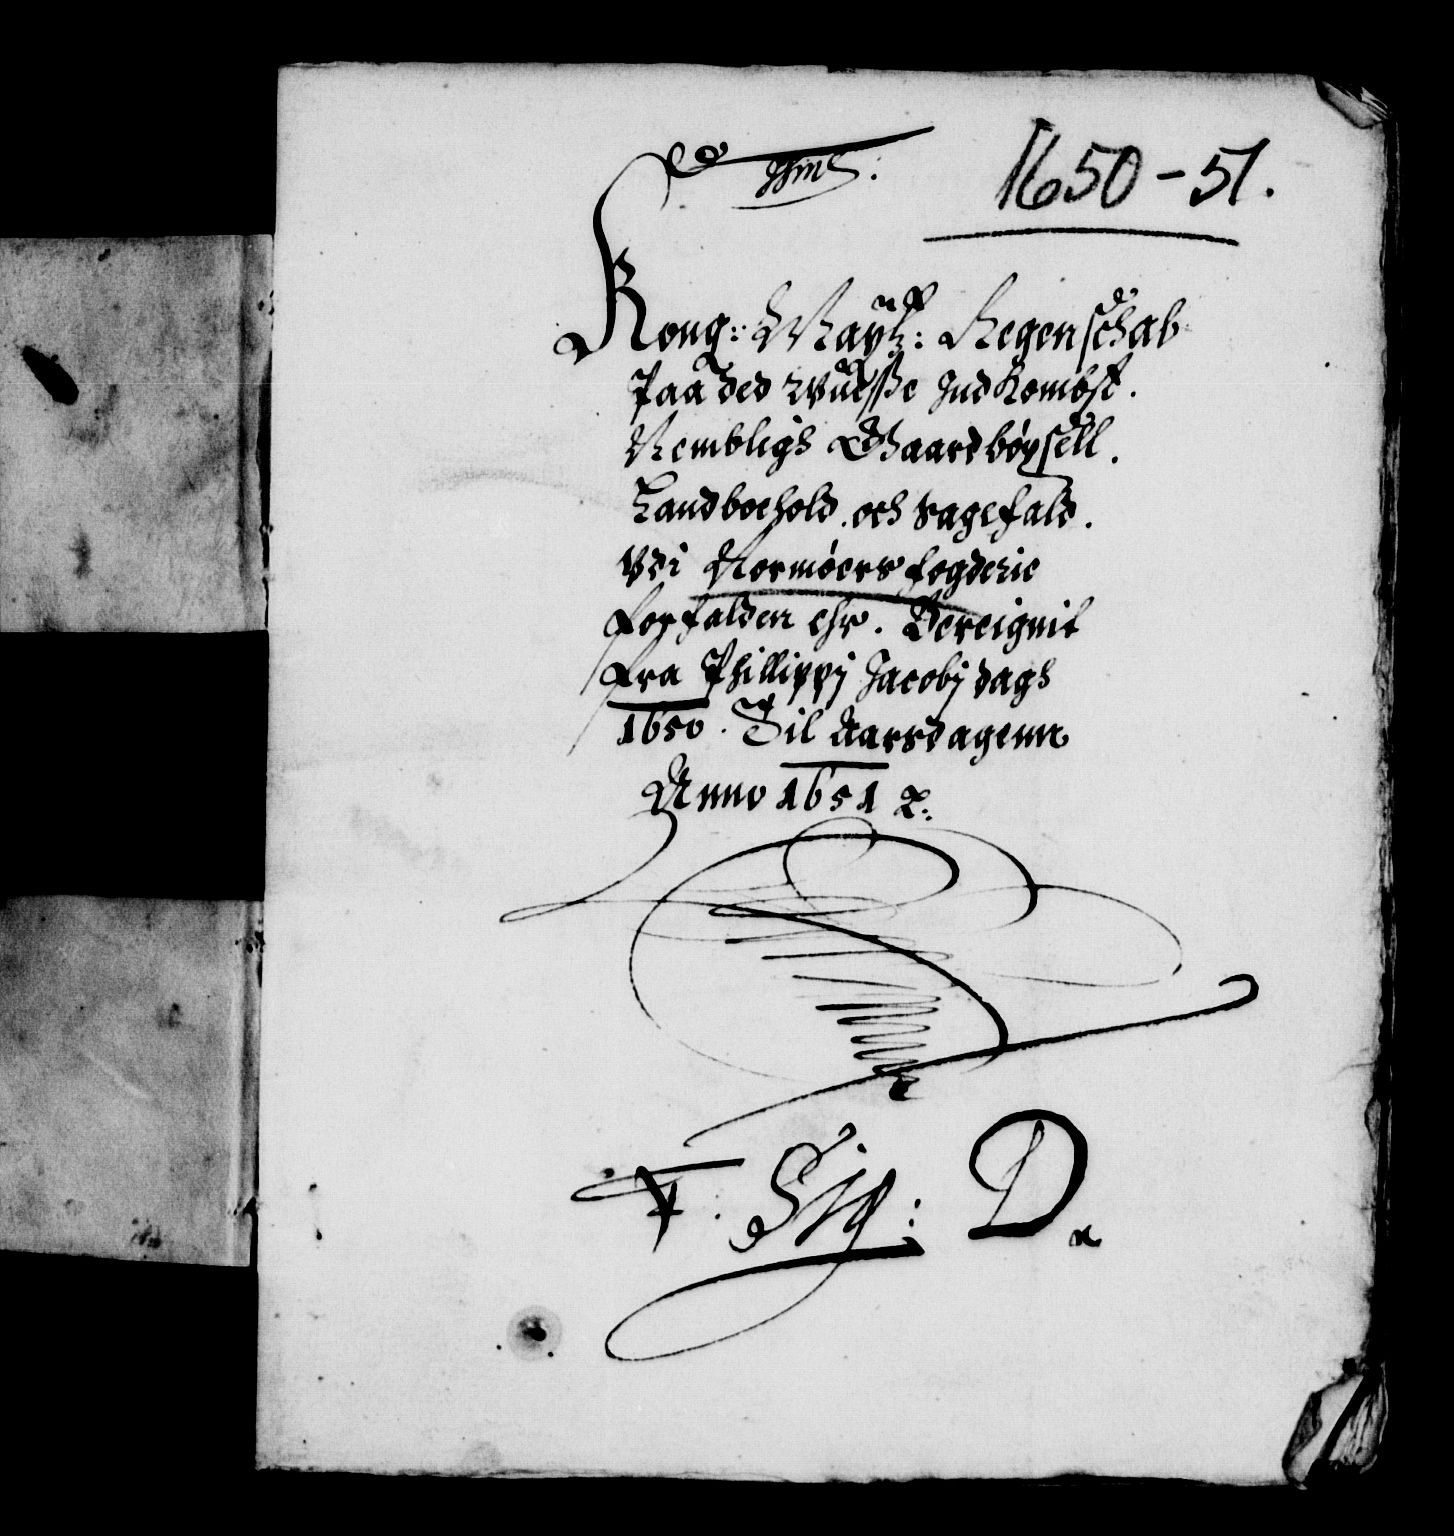 1650-51.
Kong: Maytz: Regenschab
Paa ded Wuesse Indkombst.
Nembligh Gaardbøysell.
Landboehold. och sagefald.
Vdi Normøers fogderie
forfalden ehr. Bereignit
fra Phillippj Jacobj dagh
1650. Til Aarsdagenn
Anno 1651
F. Sig: D